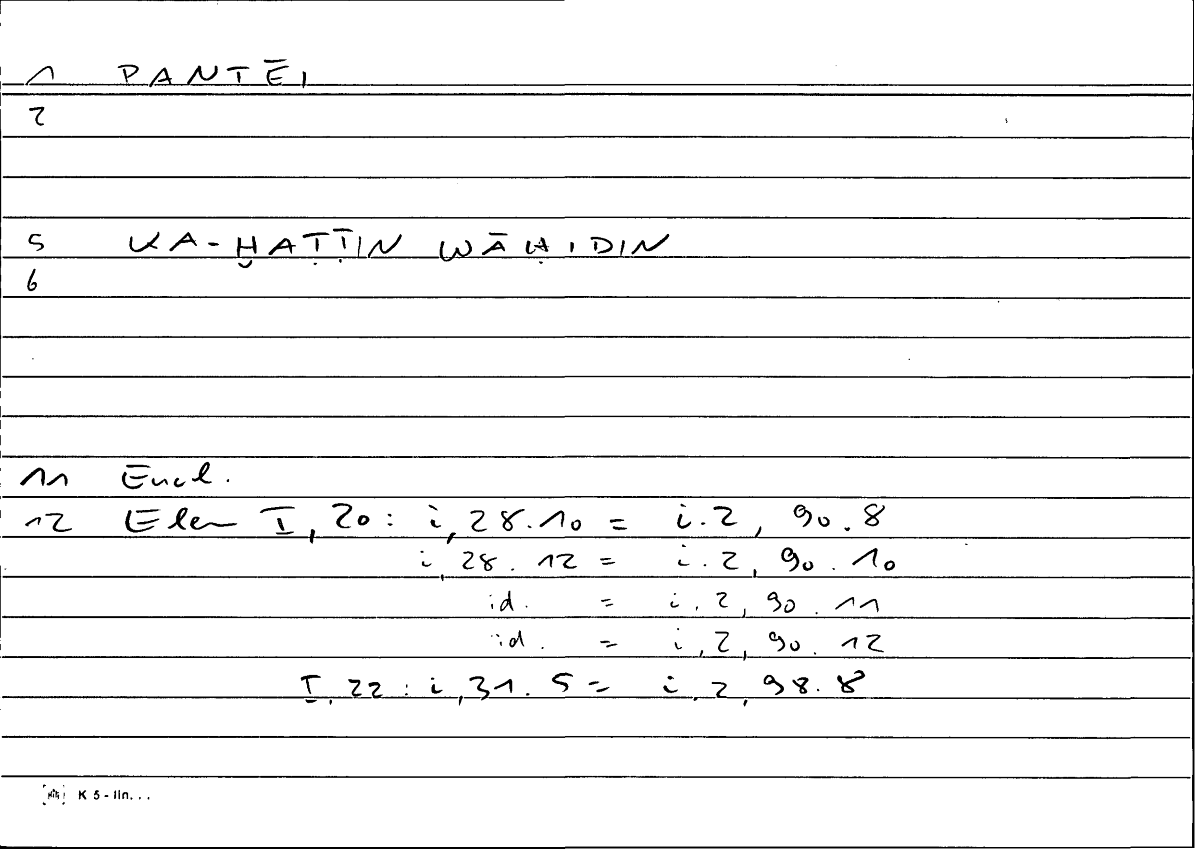 1 PANTĒI
2
5 KA-ḪAṬṬIN WĀḤIDIN
6
11 Eucl.
12 Elem I, 20: i, 28.10 = i.2, 90.8
i, 28.12 = i.2, 90.10
id. = i.2, 90.11
id. = i,2, 90.12
I, 22: i, 31.5 = i,2, 98.8
K 5 - lin...